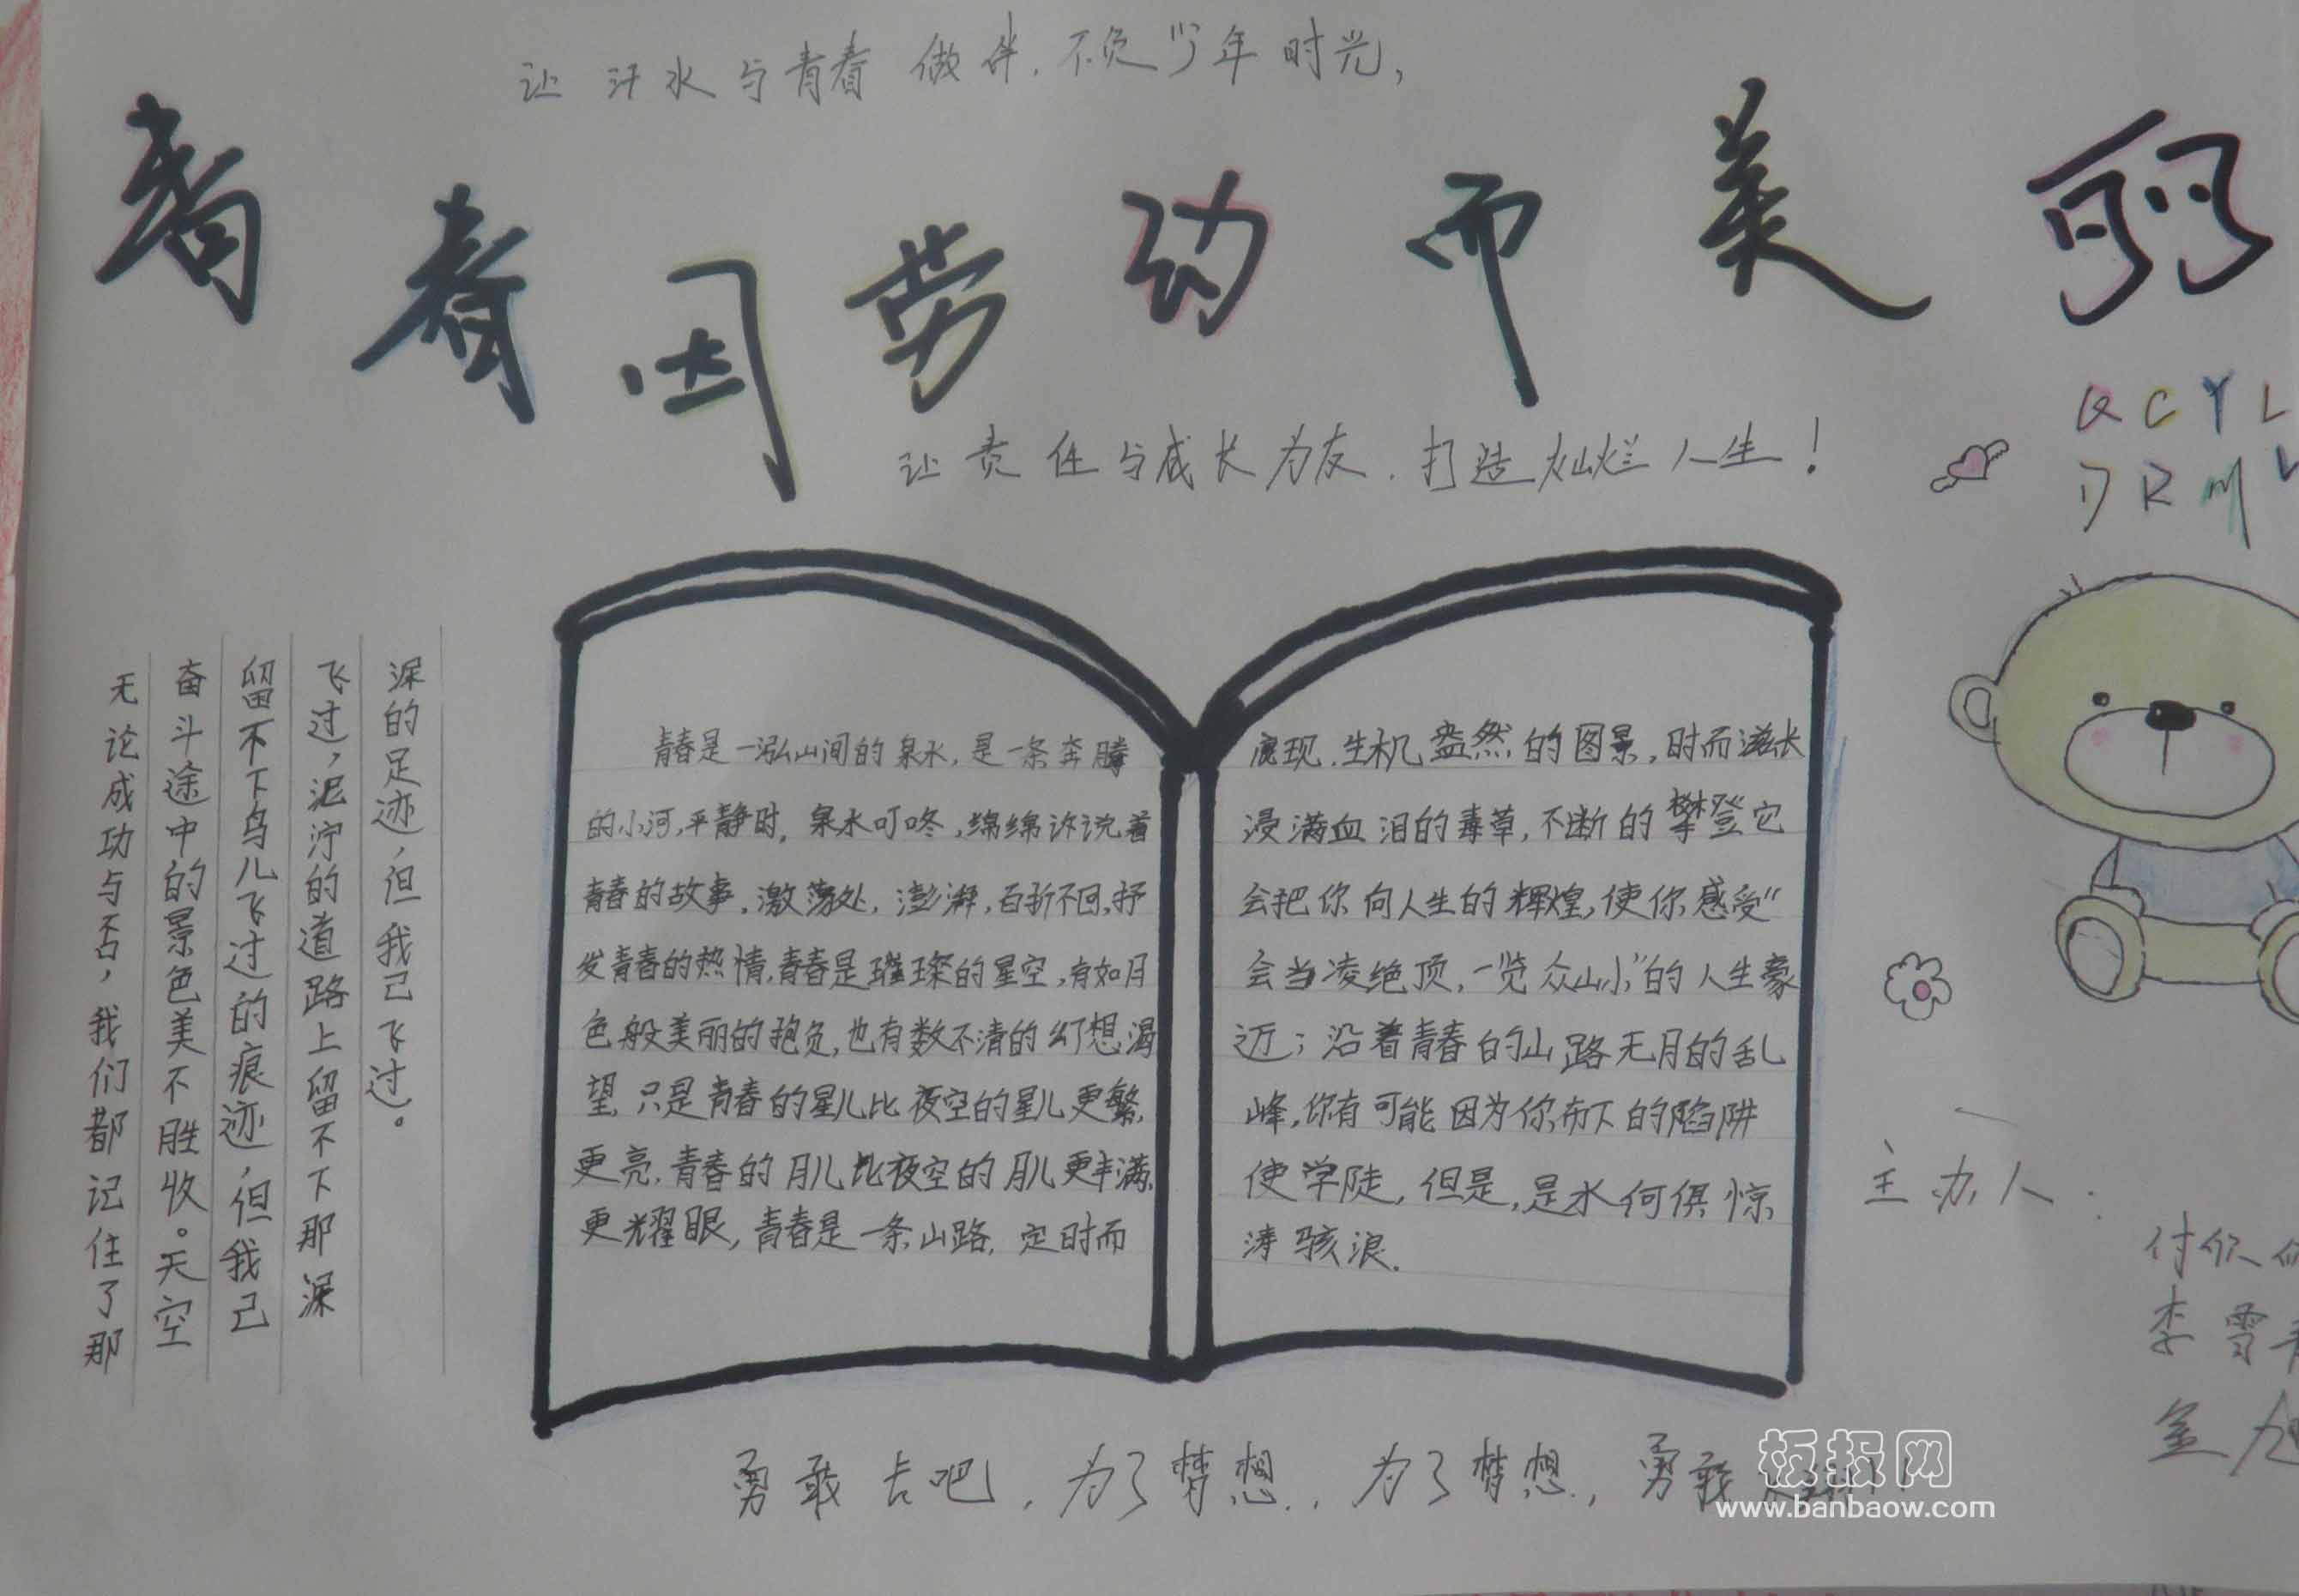 让汗水与青春做伴，不负少年时光，
青春因劳动而美丽
让责任与成长为友，打造灿烂人生！
Q C Y L
D R M
无论成功与否，我们都记住了那
奋斗途中的景色美不胜收。天空
留不下鸟儿飞过的痕迹，但我己
飞过，泥泞的道路上留不下那深
深的足迹，但我己飞过。
青春是一泓山间的泉水，是一条奔腾
的小河，平静时，泉水叮咚，绵绵诉说着
青春的故事。激荡处，澎湃，百折不回，抒
发青春的热情，青春是璀璨的星空，有如月
色般美丽的抱负，也有数不清的幻想渴
望，只是青春的星儿比夜空的星儿更繁，
更亮，青春的月儿比夜空的月儿更丰满，
更耀眼，青春是一条山路，定时而
展现，生机盎然的图景，时而滋长
浸满血泪的毒草，不断的攀登它
会把你向人生的辉煌，使你感受“
会当凌绝顶，一览众山小”的人生豪
近；沿着青春的山路无月的乱
峰，你有可能因为你布下的陷阱
使学陡，但是，是水何惧惊
涛骇浪。
主办人：
李雪
勇敢去吧，为了梦想，为了梦想，勇敢
板报网
www.banbaow.com